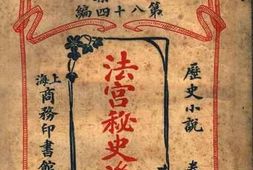 第八十四編
歷史小說
法宮秘史
上海商務印書館